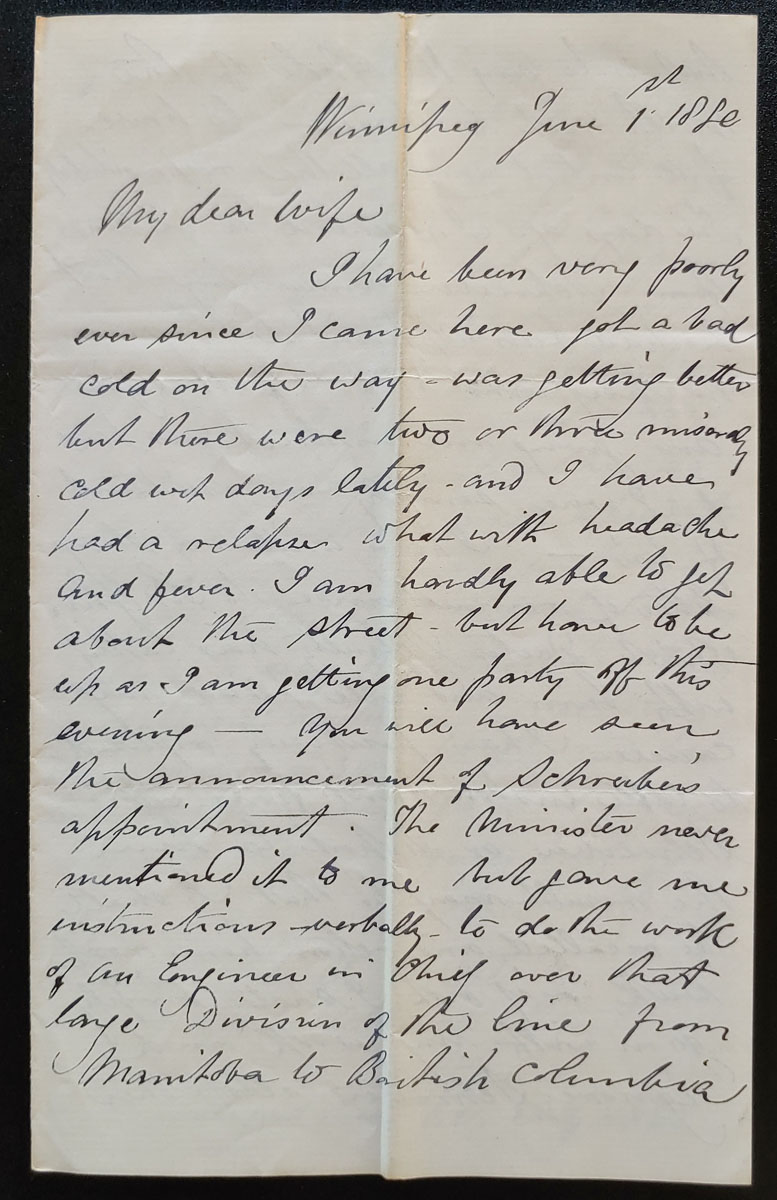 Winnipeg June 1st 1880
My dear Wife
I have been very poorly
ever since I came here got a bad
cold on the way - was getting better
but there were two or three miserably
cold wet days lately - and I have
had a relapse what with headache
and fever. I am hardly able to get
about the street - but have to be
up as I am getting one party off this
evening — You will have seen
the announcement of Schreiber's
appointment. The Minister never
mentioned it to me but gave me
instructions - verbally - to do the work
of an Engineer in Chief over that
large Division of the line from
Manitoba to British Columbia